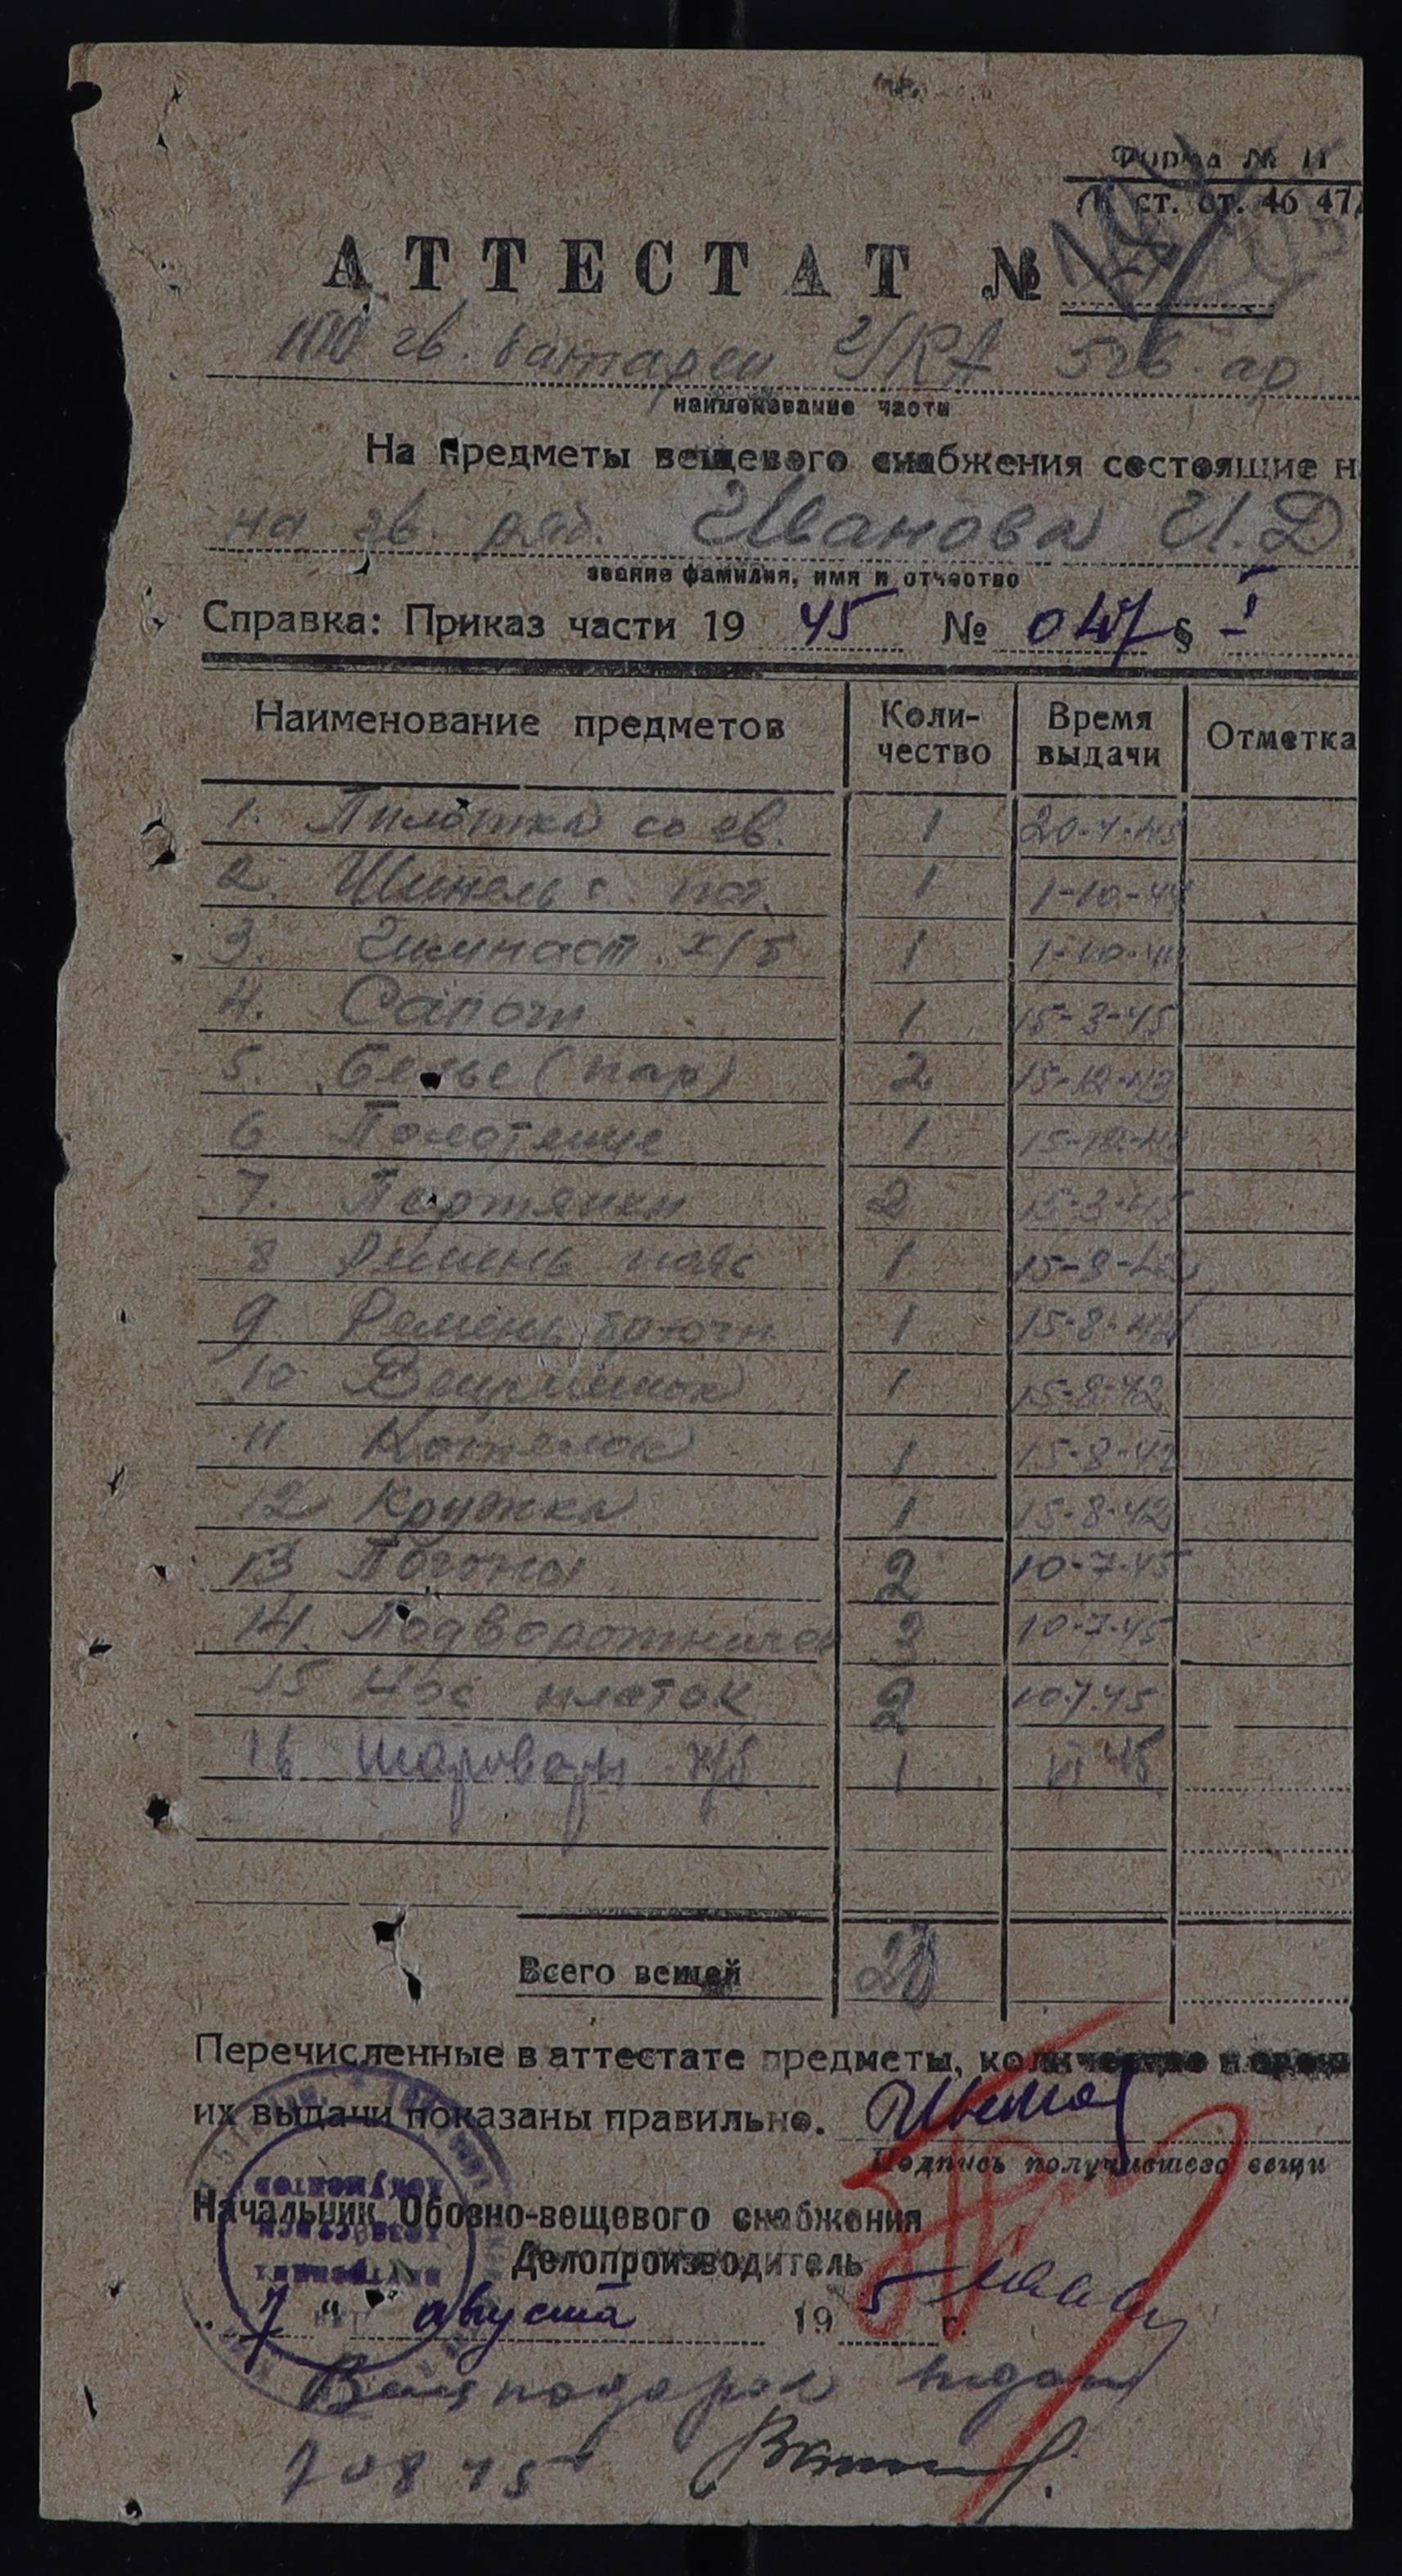 Форма № 11
(К ст. ст. 46 47)
АТТЕСТАТ №
гв. батареи УКА 5 гв. ар
наименование части
На предметы вещевого снабжения состоящие н
на гв. ряд. Иванова И.Д.
звание фамилия, имя и отчество
Справка: Приказ части 19 45 № 047 § I
Наименование предметов Коли- Время Отметка
чество выдачи
1. Пилотка со зв. 1 20-4-45
2. Шинель 1 1-10-44
3. Гимнаст. х/б 1 1-10-44
4. Сапоги 1 15-3-45
5. Белье (пар) 2 15-12-43
6 Полотенце 1
7. Портянки 2 15-3-45
8 Ремень пояс 1 15-8-42
9. Ремень брючн. 1 15-8-42
10 Вещмешок 1 15-8-42
11 Котелок 1 15-8-42
12 Кружка 1 15-8-42
13 Погоны 2 10-7-45
14. Подворотничок 3 10-7-45
15 Нос платок 2 10.7.45
16 Шаровары х/б 1 VI 45
Всего вещей
Перечисленные в аттестате предметы, количество и сроки
их выдачи показаны правильно.
Подпись получившего вещи
Начальник Обозно-вещевого снабжения
Делопроизводитель
„ 7 “ августа 19 5 г.
Вещподарок выдан
7 08 45